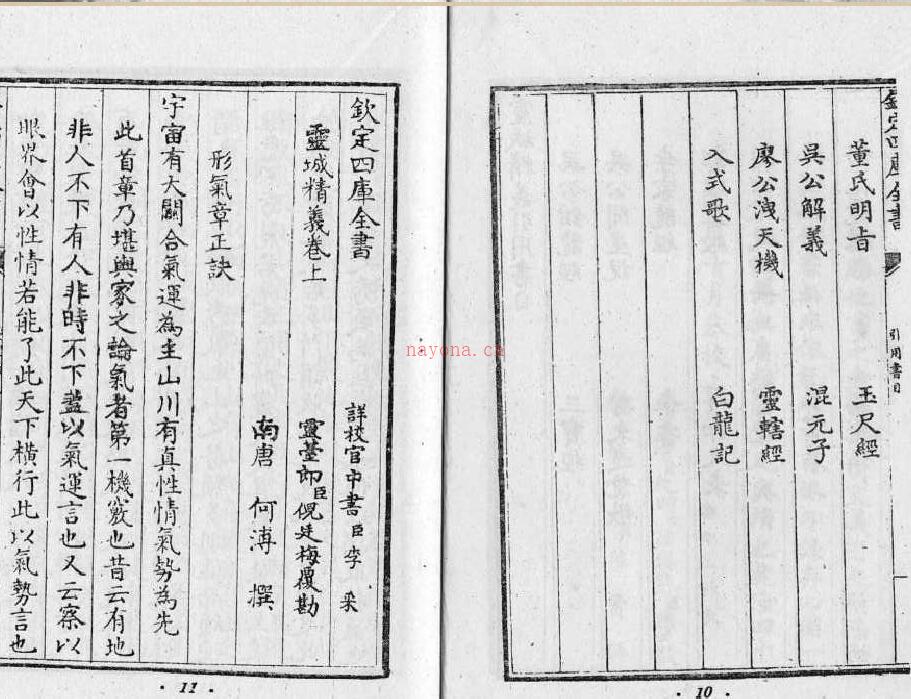 欽定四庫全書
引用書目
董氏明旨 玉尺經
吳公解義 混元子
廖公洩天機 靈轄經
入式歌 白龍記
· 10 ·
欽定四庫全書
詳校官中書臣李采
靈臺郎臣倪廷梅覆勘
靈城精義卷上
南唐 何溥 撰
形氣章正訣
宇宙有大關合氣運為主山川有真性情氣勢為先
此首章乃堪輿家之論氣者第一機竅也昔云有地
非人不下有人非時不下蓋以氣運言也又云察以
眼界會以性情若能了此天下橫行此以氣勢言也
· 11 ·
nayona.ca